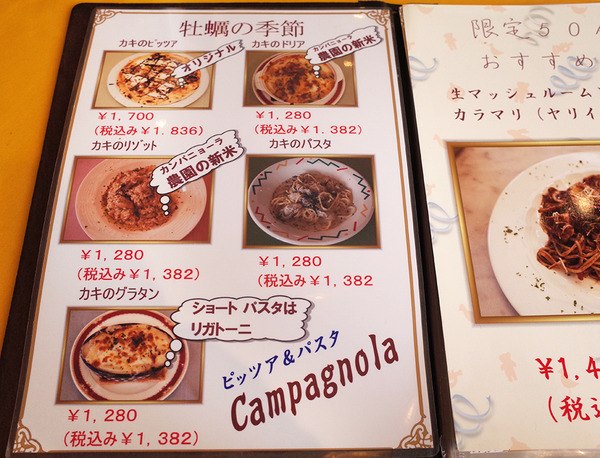 牡蠣の季節
カキのピッツア
オリジナル
¥1,700
(税込み¥1.836)
カキのドリア
カンパニョーラ
農園の新米
¥1,280
(税込み¥1.382)
カキのリゾット
カンパニョーラ
農園の新米
¥1,280
(税込み¥1,382)
カキのパスタ
¥1,280
(税込み¥1,382
カキのグラタン
ショート パスタは
リガトーニ
¥1,280
(税込み¥1,382)
ピッツア&パスタ
Campagnola
限定50
おすすめ
生マッシュルーム
カラマリ(ヤリイ
¥1,4
(税